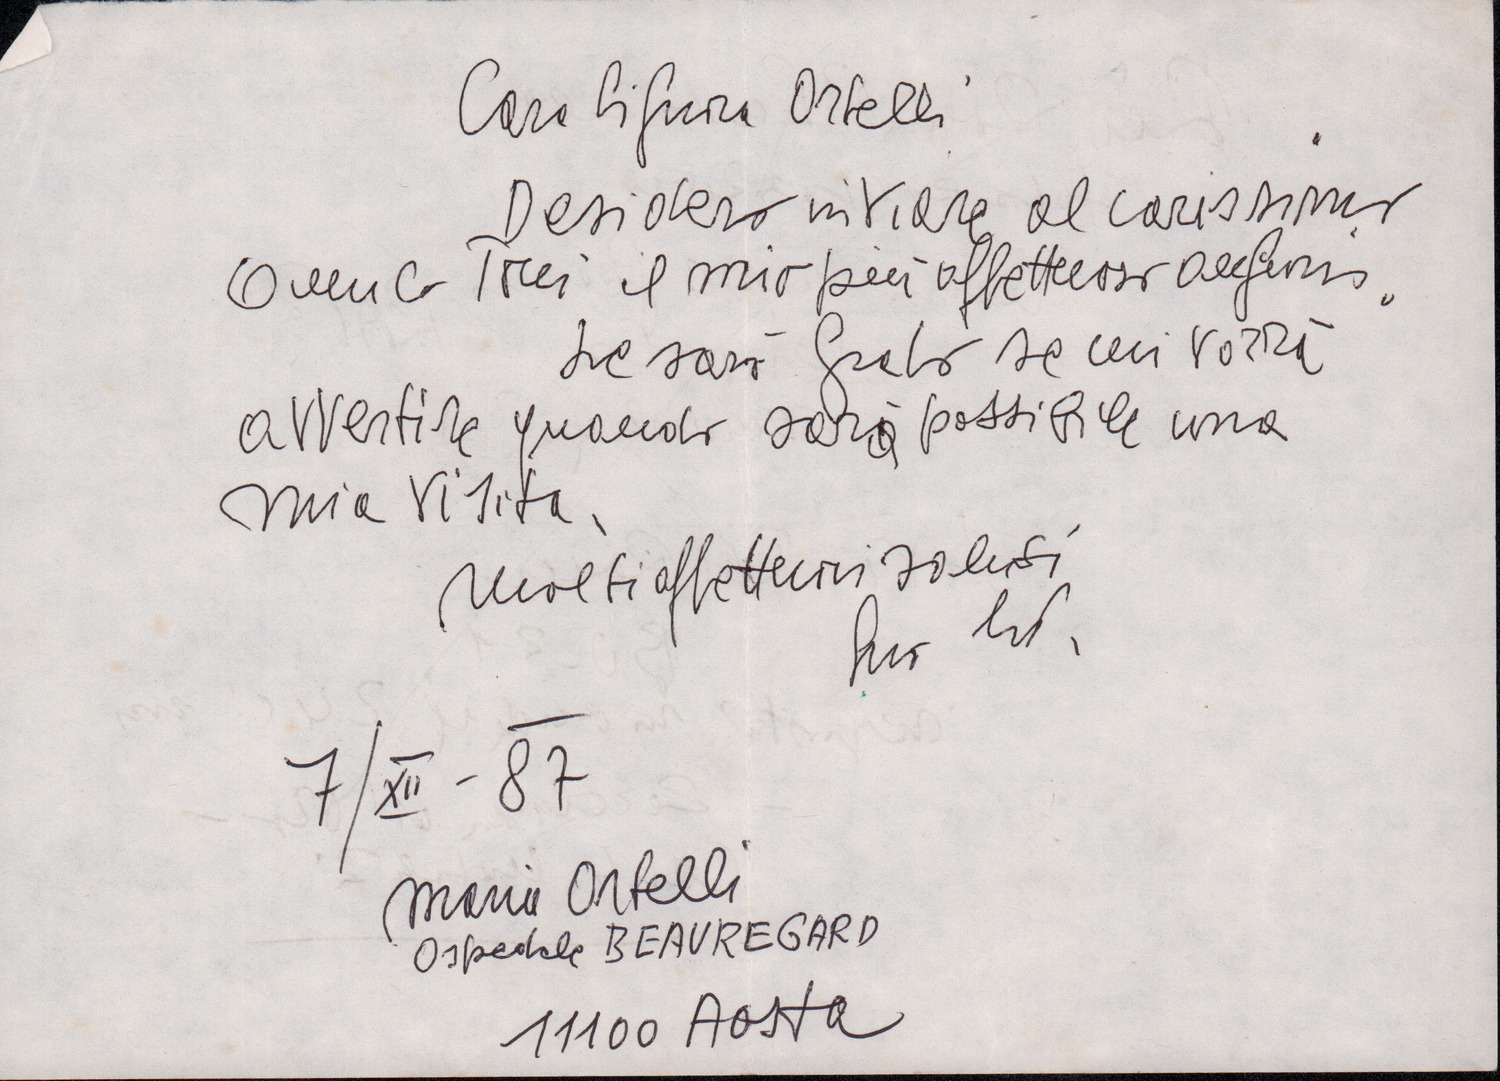 Cara Signora Ortelli
Desidero inviare al carissimo
amico Toni il mio più affettuoso augurio.
Le sarò grato se mi vorrà
avvertire quando sarà possibile una
mia visita.
Molti affettuosi saluti
Suo
7/XII - 87
Maria Ortelli
Ospedale BEAUREGARD
11100 Aosta